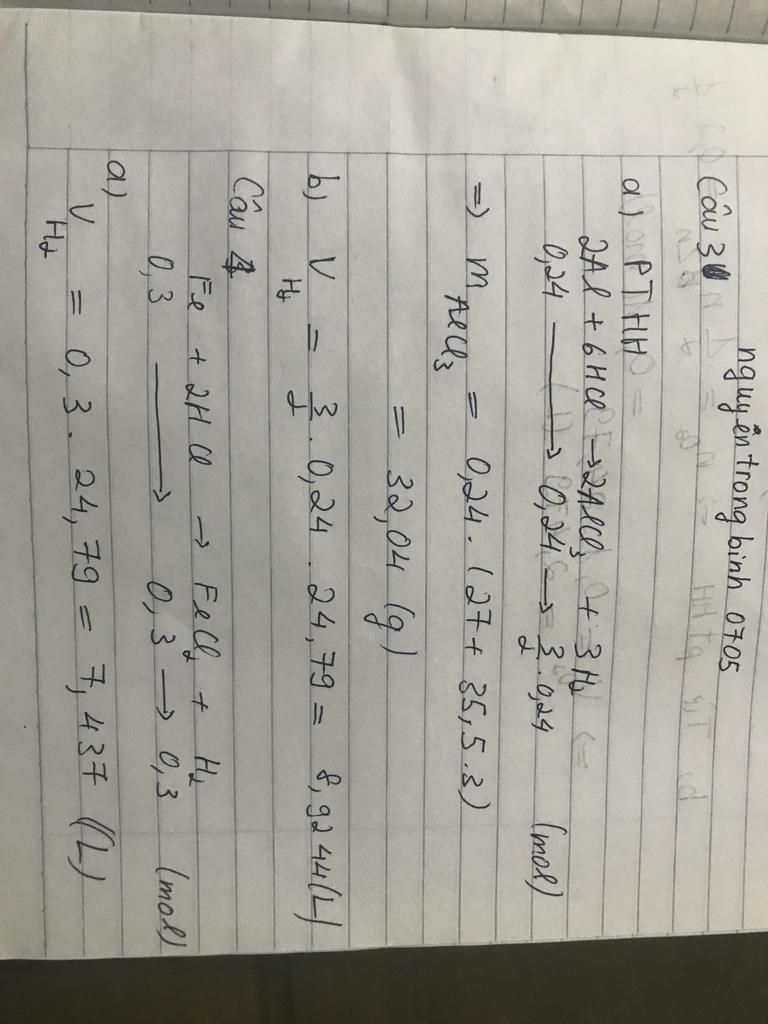 nguyễn trong binh 0705
Câu 3
a) PTHH
2Al + 6HCl → 2AlCl₃ + 3H₂
0,24 → 0,24 → 3/2 . 0,24 (mol)
=> m AlCl₃ = 0,24 . (27 + 35,5.3)
= 32,04 (g)
b) V H₂ = 3/2 . 0,24 . 24,79 = 8,9244 (L)
Câu 4
Fe + 2HCl → FeCl₂ + H₂
0,3 → 0,3 → 0,3 (mol)
a)
V H₂ = 0,3 . 24,79 = 7,437 (L)